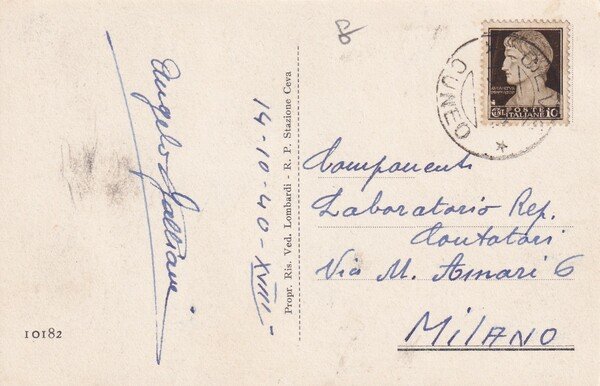 Angelo Galliani
14-10-40-XVIII
Propr. Ris. Ved. Lombardi - R. P. Stazione Ceva
10182
CUNEO
POSTE
ITALIANE
CENT 10
Componenti
Laboratorio Rep.
Contatori
Via M. Amari 6
MILANO